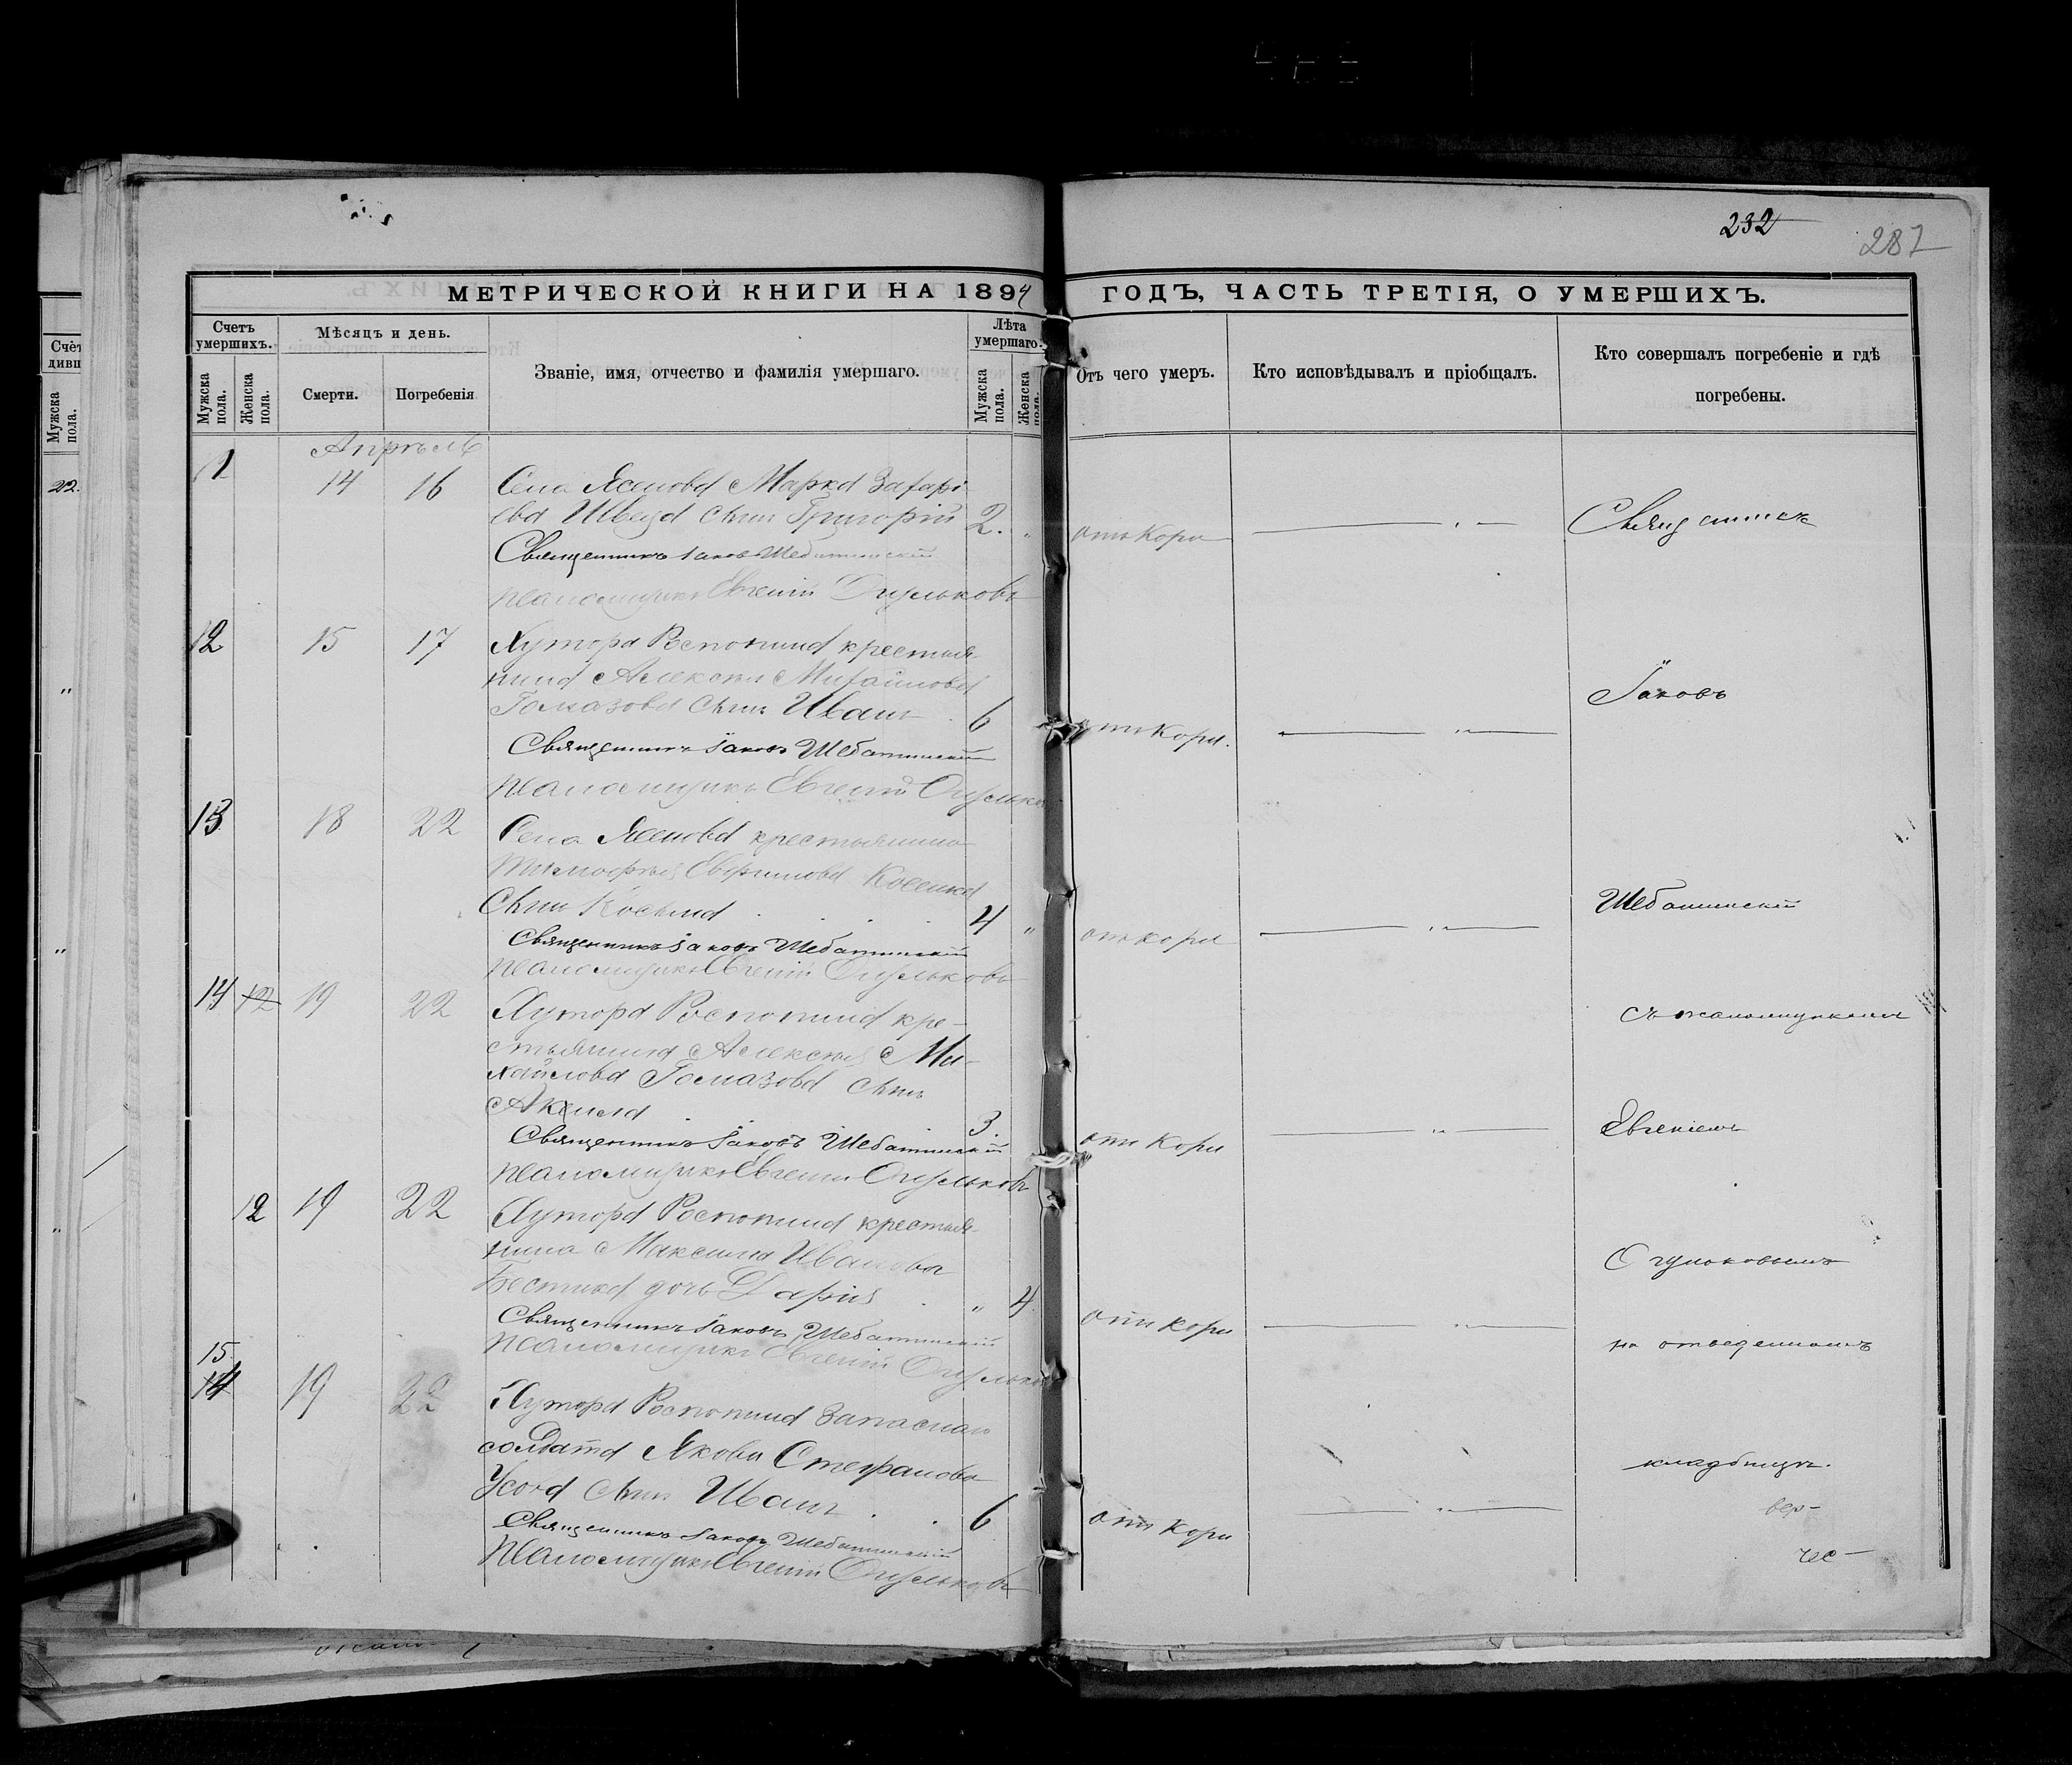 232
287
МЕТРИЧЕСКОЙ КНИГИ НА 1894 ГОДЪ, ЧАСТЬ ТРЕТІЯ, О УМЕРШИХЪ.
Счетъ умершихъ.
Мѣсяцъ и день.
Званіе, имя, отчество и фамилія умершаго.
Лѣта умершаго.
Отъ чего умеръ.
Кто исповѣдывалъ и пріобщалъ.
Кто совершалъ погребеніе и гдѣ
погребены.
Мужска пола.
Женска пола.
Смерти.
Погребенія
Мужска пола.
Женска пола.
Апрѣль
11 14 16 Села Ясенова Марка Захарі
ева Швеца сынъ Григорій 2. " отъ кори — " — Священникъ
Священникъ Іаковъ Шебатинскій
псаломщикъ Евгеній Огульковъ
12 15 17 Хутора Распопина крестья-
нина Алексѣя Михайлова
Гомазова сынъ Иванъ 6 отъ кори. — " — Іаковъ
Священникъ Іаковъ Шебатинскій
псаломщикъ Евгеній
13 18 22 Села Ясенова крестьянина
Тимофѣя Евфимова
сынъ Косьма 4 " отъ кори — " — Шебатинскій
Священникъ Іаковъ Шебатинскій
псаломщикъ Евгеній Огульковъ
14 12 19 22 Хутора Распопина кре-
стьянина Алексѣя Ми-
хайлова Гомазова сынъ
3. отъ кори — " — съ псаломщикомъ
Священникъ Іаковъ Шебатинскій
псаломщикъ Евгеній Огульковъ
Евгеніемъ
12 19 22 Хутора Распопина крестья-
нина Максима Иванова
дочь Дарія " 4 отъ кори — " — Огульковымъ
Священникъ Іаковъ Шебатинскій
псаломщикъ Евгеній
на отведенномъ
15.
14 19 22 Хутора Распопина запаснаго
солдата Якова Стефанова
сынъ Иванъ 6 отъ кори — " — кладбищѣ.
Священникъ Іаковъ Шебатинскій
псаломщикъ Евгеній Огульковъ
вер-
Счет
дивш
Мужска пола.
22.
"
"
"